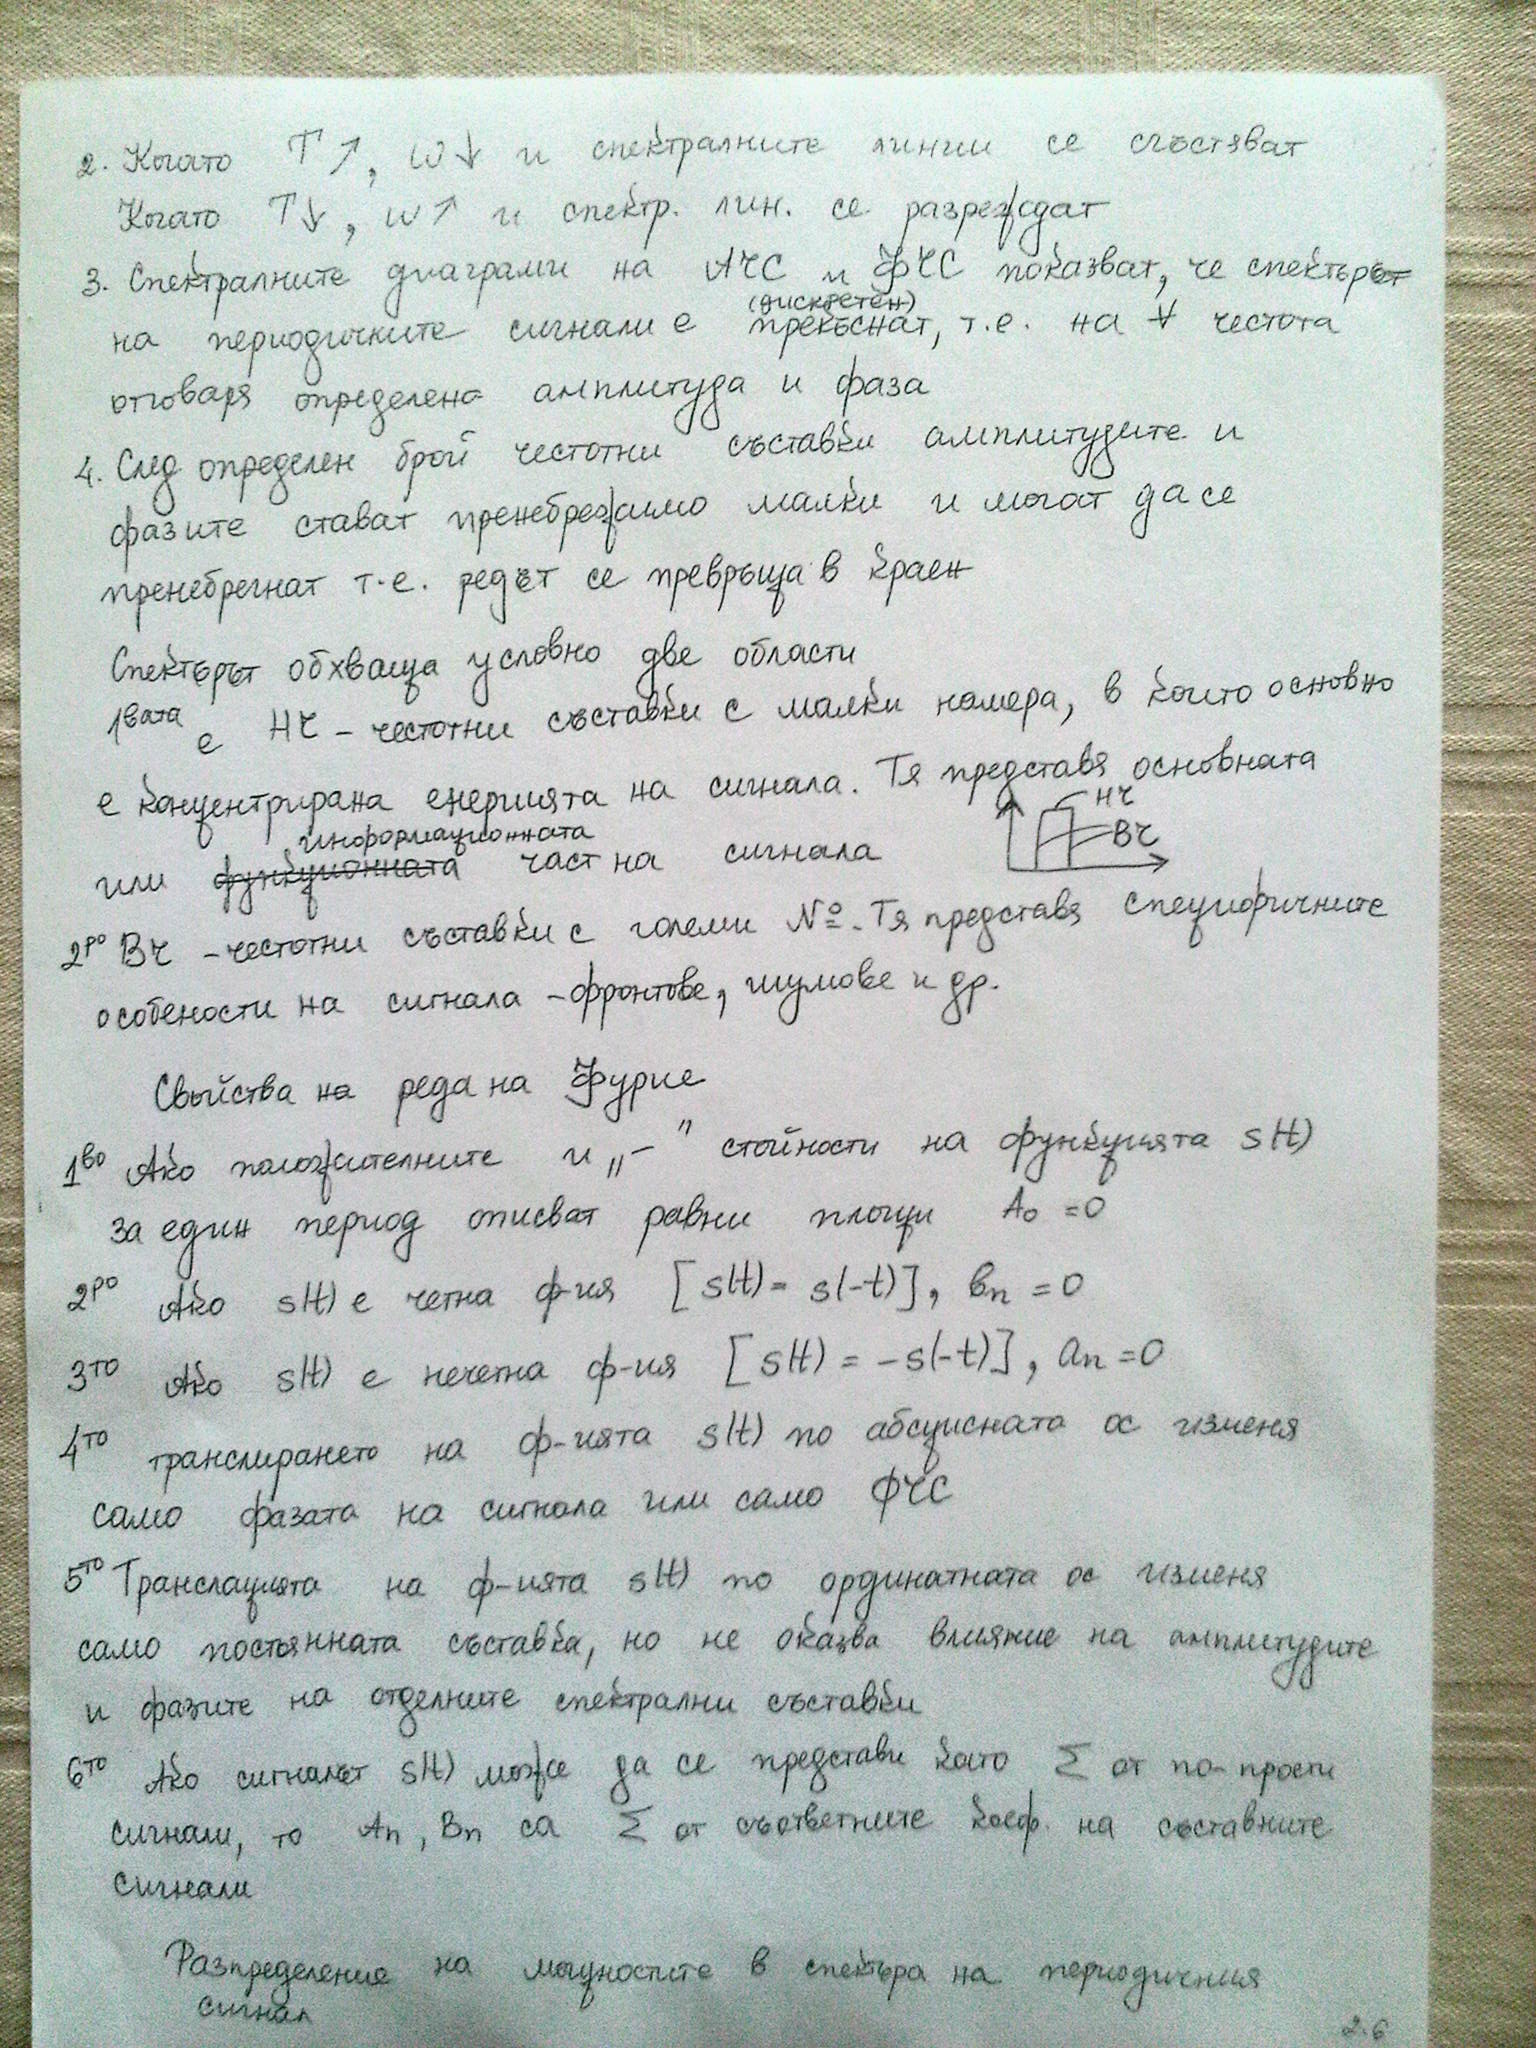 2. Когато T↑, ω↓ и спектралните линии се сгъстяват
Когато T↓, ω↑ и спектр. лин. се разреждат
3. Спектралните диаграми на АЧС и ФЧС показват, че спектърът
(дискретен)
на периодичните сигнали е прекъснат, т.е. на ∀ честота
отговаря определена амплитуда и фаза
4. След определен брой честотни съставки амплитудите и
фазите стават пренебрежимо малки и могат да се
пренебрегнат т.е. редът се превръща в краен
Спектърът обхваща условно две области
1вата е НЧ – честотни съставки с малки номера, в които основно
е концентрирана енергията на сигнала. Тя представя основната
НЧ
информационната
ВЧ
или функционната част на сигнала
2ро ВЧ – честотни съставки с големи №. Тя представя специфичните
особености на сигнала – фронтове, шумове и др.
Свойства на реда на Фурие
1во Ако положителните и „–" стойности на функцията s(t)
за един период описват равни площи A₀ = 0
2ро Ако s(t) е четна ф-ия [s(t) = s(-t)], bₙ = 0
3то Ако s(t) е нечетна ф-ия [s(t) = -s(-t)], aₙ = 0
4то транслирането на ф-ията s(t) по абсцисната ос изменя
само фазата на сигнала или само ФЧС
5то Транслацията на ф-ията s(t) по ординатната ос изменя
само постоянната съставка, но не оказва влияние на амплитудите
и фазите на отделните спектрални съставки
6то Ако сигналът s(t) може да се представи като Σ от по-прости
сигнали, то Aₙ, Bₙ са Σ от съответните коеф. на съставните
сигнали
Разпределение на мощностите в спектъра на периодичния
сигнал
2.6